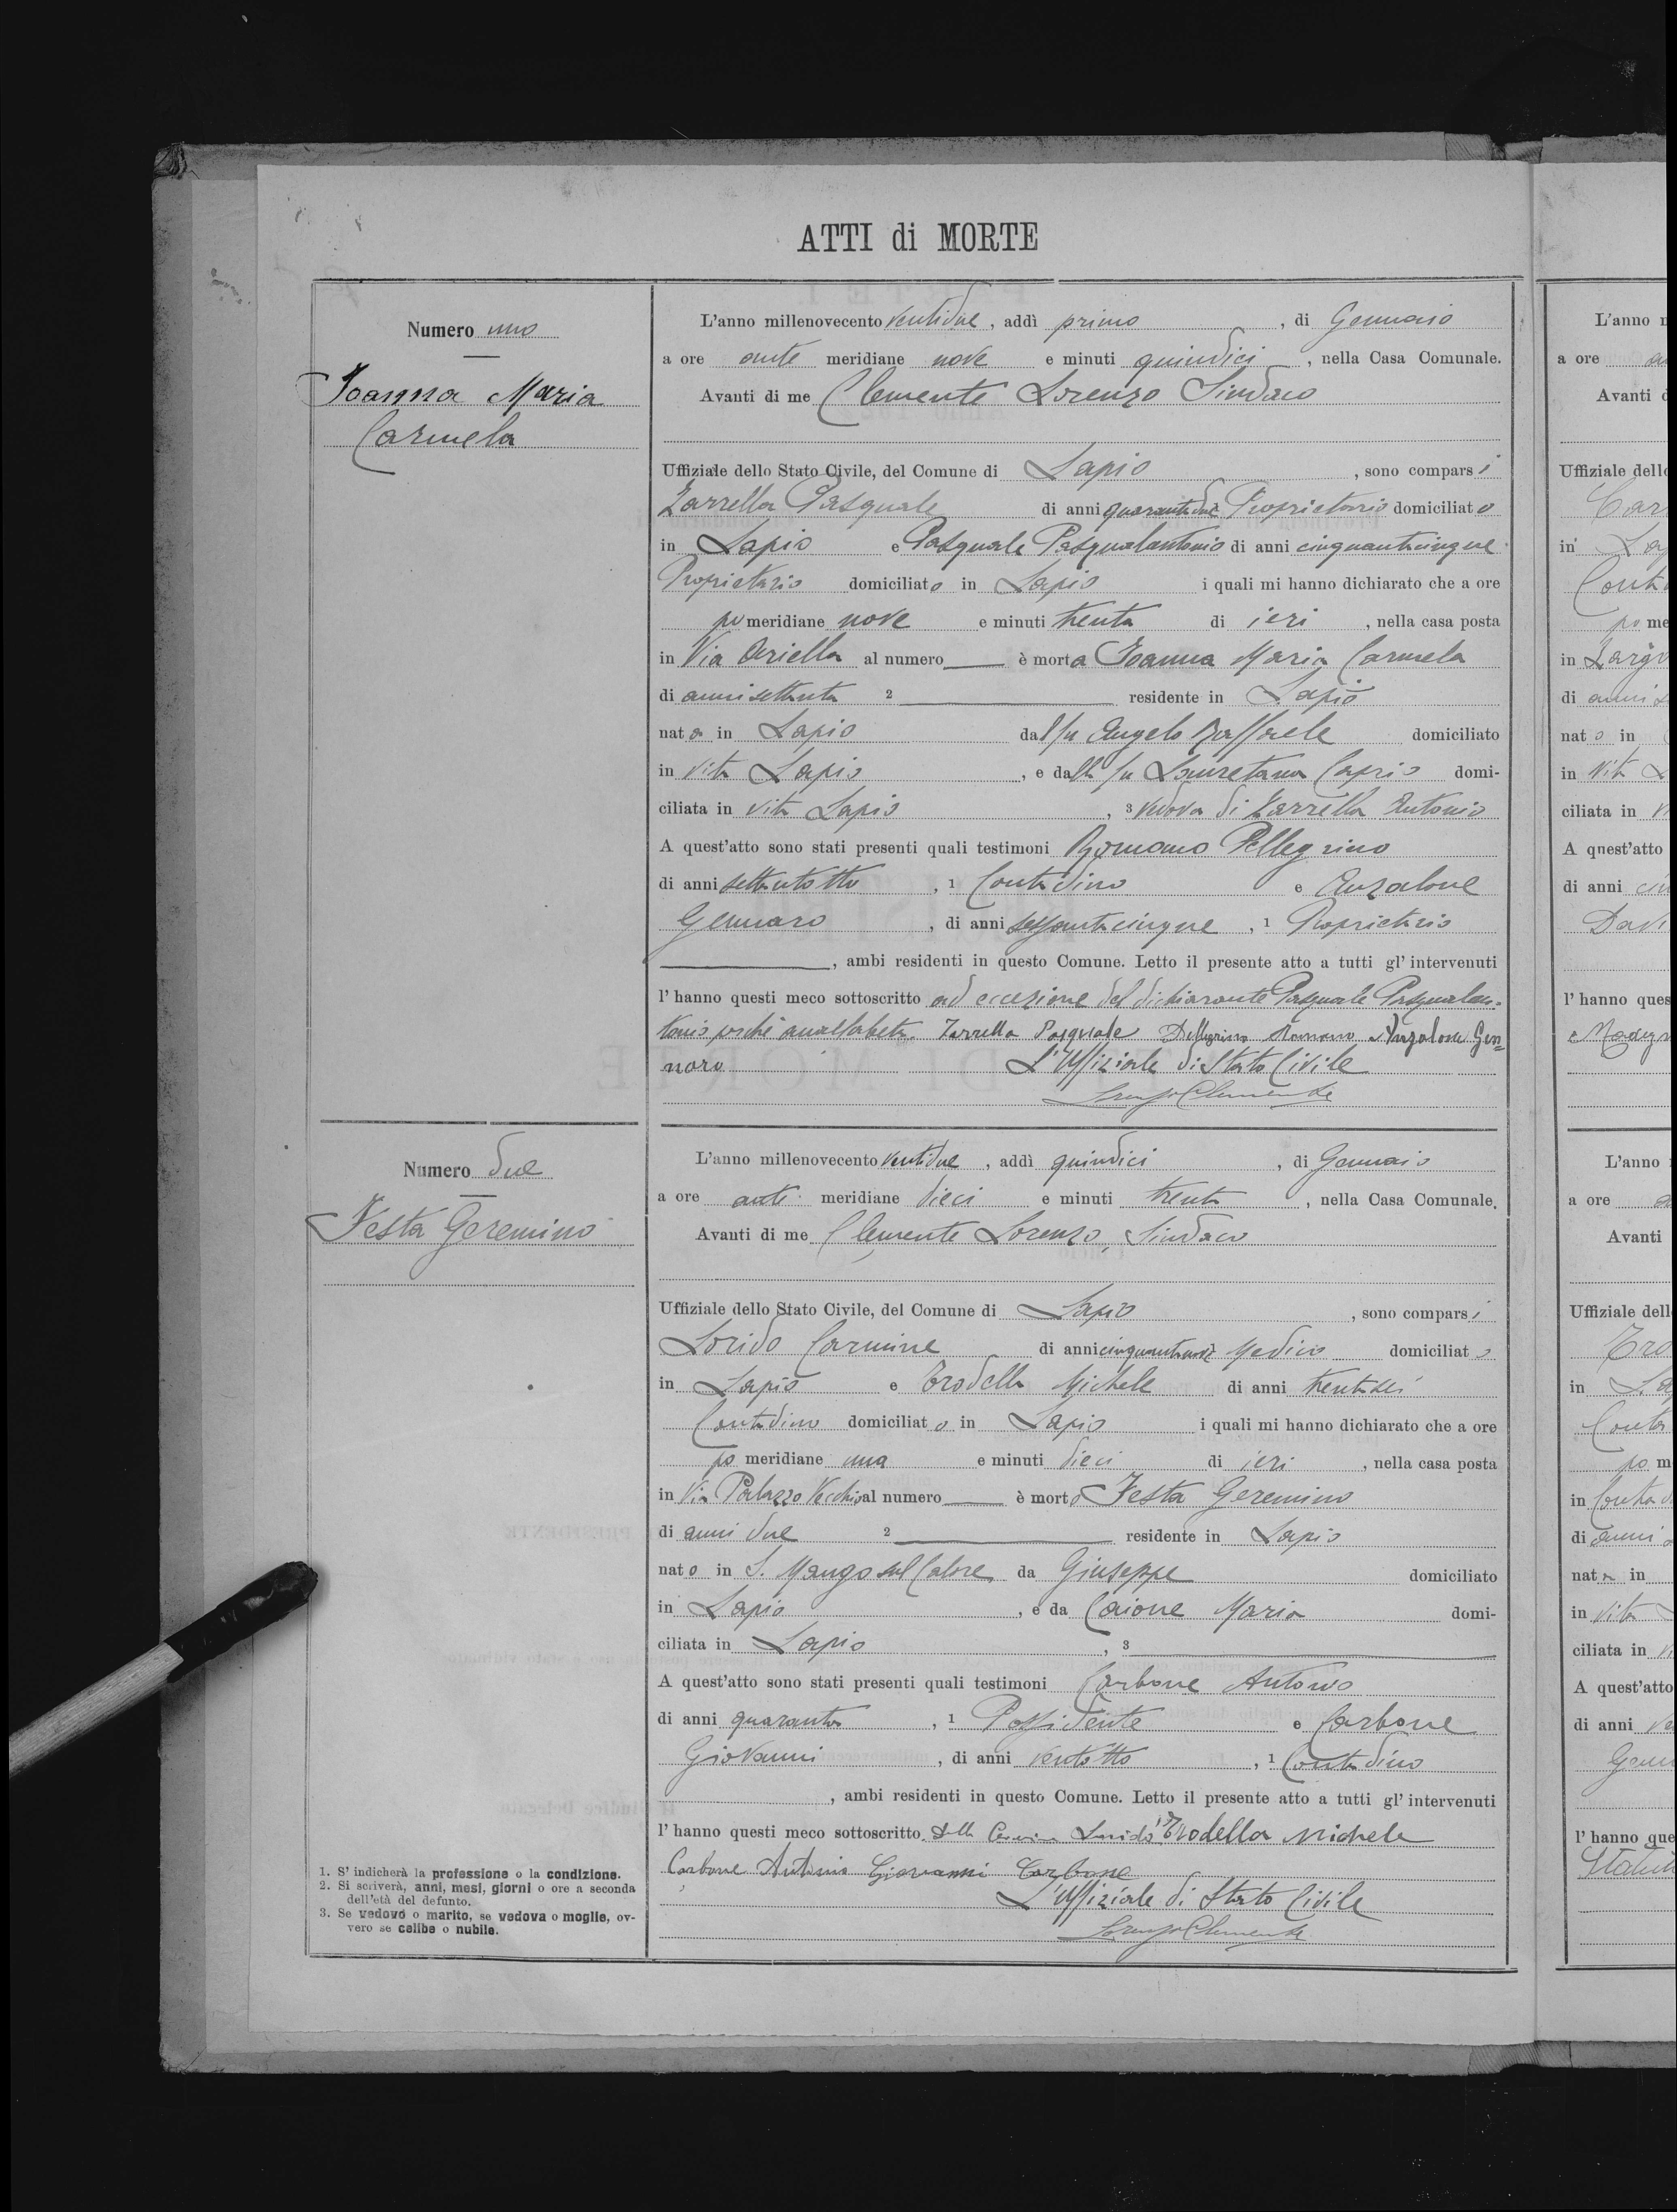 ATTI di MORTE
Numero uno
Joanna Maria
Carmela
L'anno millenovecento ventidue, addì primo, di Gennaio
a ore ante meridiane nove e minuti quindici, nella Casa Comunale.
Avanti di me Clemente Lorenzo Sindaco
Uffiziale dello Stato Civile, del Comune di Lapio, sono comparsi
Zarrella Pasquale di anni quarantadue Proprietario domiciliato
in Lapio e Pasquale Pasqualantonio di anni cinquantacinque
Proprietario domiciliato in Lapio i quali mi hanno dichiarato che a ore
pomeridiane nove e minuti trenta di ieri, nella casa posta
in Via Ariella al numero è morta Joanna Maria Carmela
di anni settanta 2 residente in Lapio
nata in Lapio dal fu Angelo Raffaele domiciliato
in vita Lapio, e dalla fu Lauretana Caprio domi-
ciliata in vita Lapio, 3 vedova di Zarrella Antonio
A quest'atto sono stati presenti quali testimoni Romano Pellegrino
di anni settantotto, 1 Contadino e Anzalone
Gennaro, di anni sessantacinque, 1 Proprietario
, ambi residenti in questo Comune. Letto il presente atto a tutti gl'intervenuti
l'hanno questi meco sottoscritto ad eccezione del dichiarante Pasquale Pasqualan-
tonio perché analfabeta. Zarrella Pasquale Pellegrino Romano Anzalone Gen=
naro L'Uffiziale di Stato Civile
Lorenzo Clemente
Numero due
Festa Geremino
L'anno millenovecento ventidue, addì quindici, di Gennaio
a ore ante meridiane dieci e minuti trenta, nella Casa Comunale.
Avanti di me Clemente Lorenzo, Sindaco
Uffiziale dello Stato Civile, del Comune di Lapio, sono comparsi
Lorido Carmine di anni Medico domiciliato
in Lapio e Trodella Michele di anni trentasei
Contadino domiciliato in Lapio i quali mi hanno dichiarato che a ore
po meridiane una e minuti dieci di ieri, nella casa posta
in Via Palazzo Vecchio al numero è morto Festa Geremino
di anni due 2 residente in Lapio
nato in S. Mango sul Calore da Giuseppe domiciliato
in Lapio, e da Caione Maria domi-
ciliata in Lapio, 3
A quest'atto sono stati presenti quali testimoni Carbone Antonio
di anni quaranta, 1 Possidente e Carbone
Giovanni, di anni ventotto, 1 Contadino
, ambi residenti in questo Comune. Letto il presente atto a tutti gl'intervenuti
l'hanno questi meco sottoscritto. Trodella Michele
Carbone Antonio Giovanni Carbone
L'Uffiziale di Stato Civile
Lorenzo Clemente
1. S'indicherà la professione o la condizione.
2. Si scriverà, anni, mesi, giorni o ore a seconda
dell'età del defunto.
3. Se vedovo o marito, se vedova o moglie, ov-
vero se celibe o nubile.